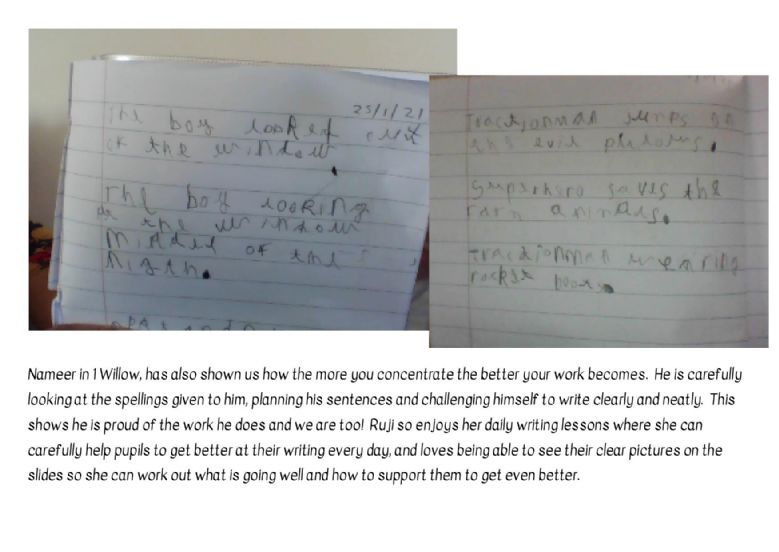 25/1/21
The boy looked out
of the window
The boy looking
at the window
middel of the
nigth.
Tractionman jumps on
the evil pillows.
Superhero saves the
farm animals.
Tractionman wearing
rocket boots.
Nameer in 1Willow, has also shown us how the more you concentrate the better your work becomes. He is carefully
looking at the spellings given to him, planning his sentences and challenging himself to write clearly and neatly. This
shows he is proud of the work he does and we are too! Ruji so enjoys her daily writing lessons where she can
carefully help pupils to get better at their writing every day, and loves being able to see their clear pictures on the
slides so she can work out what is going well and how to support them to get even better.